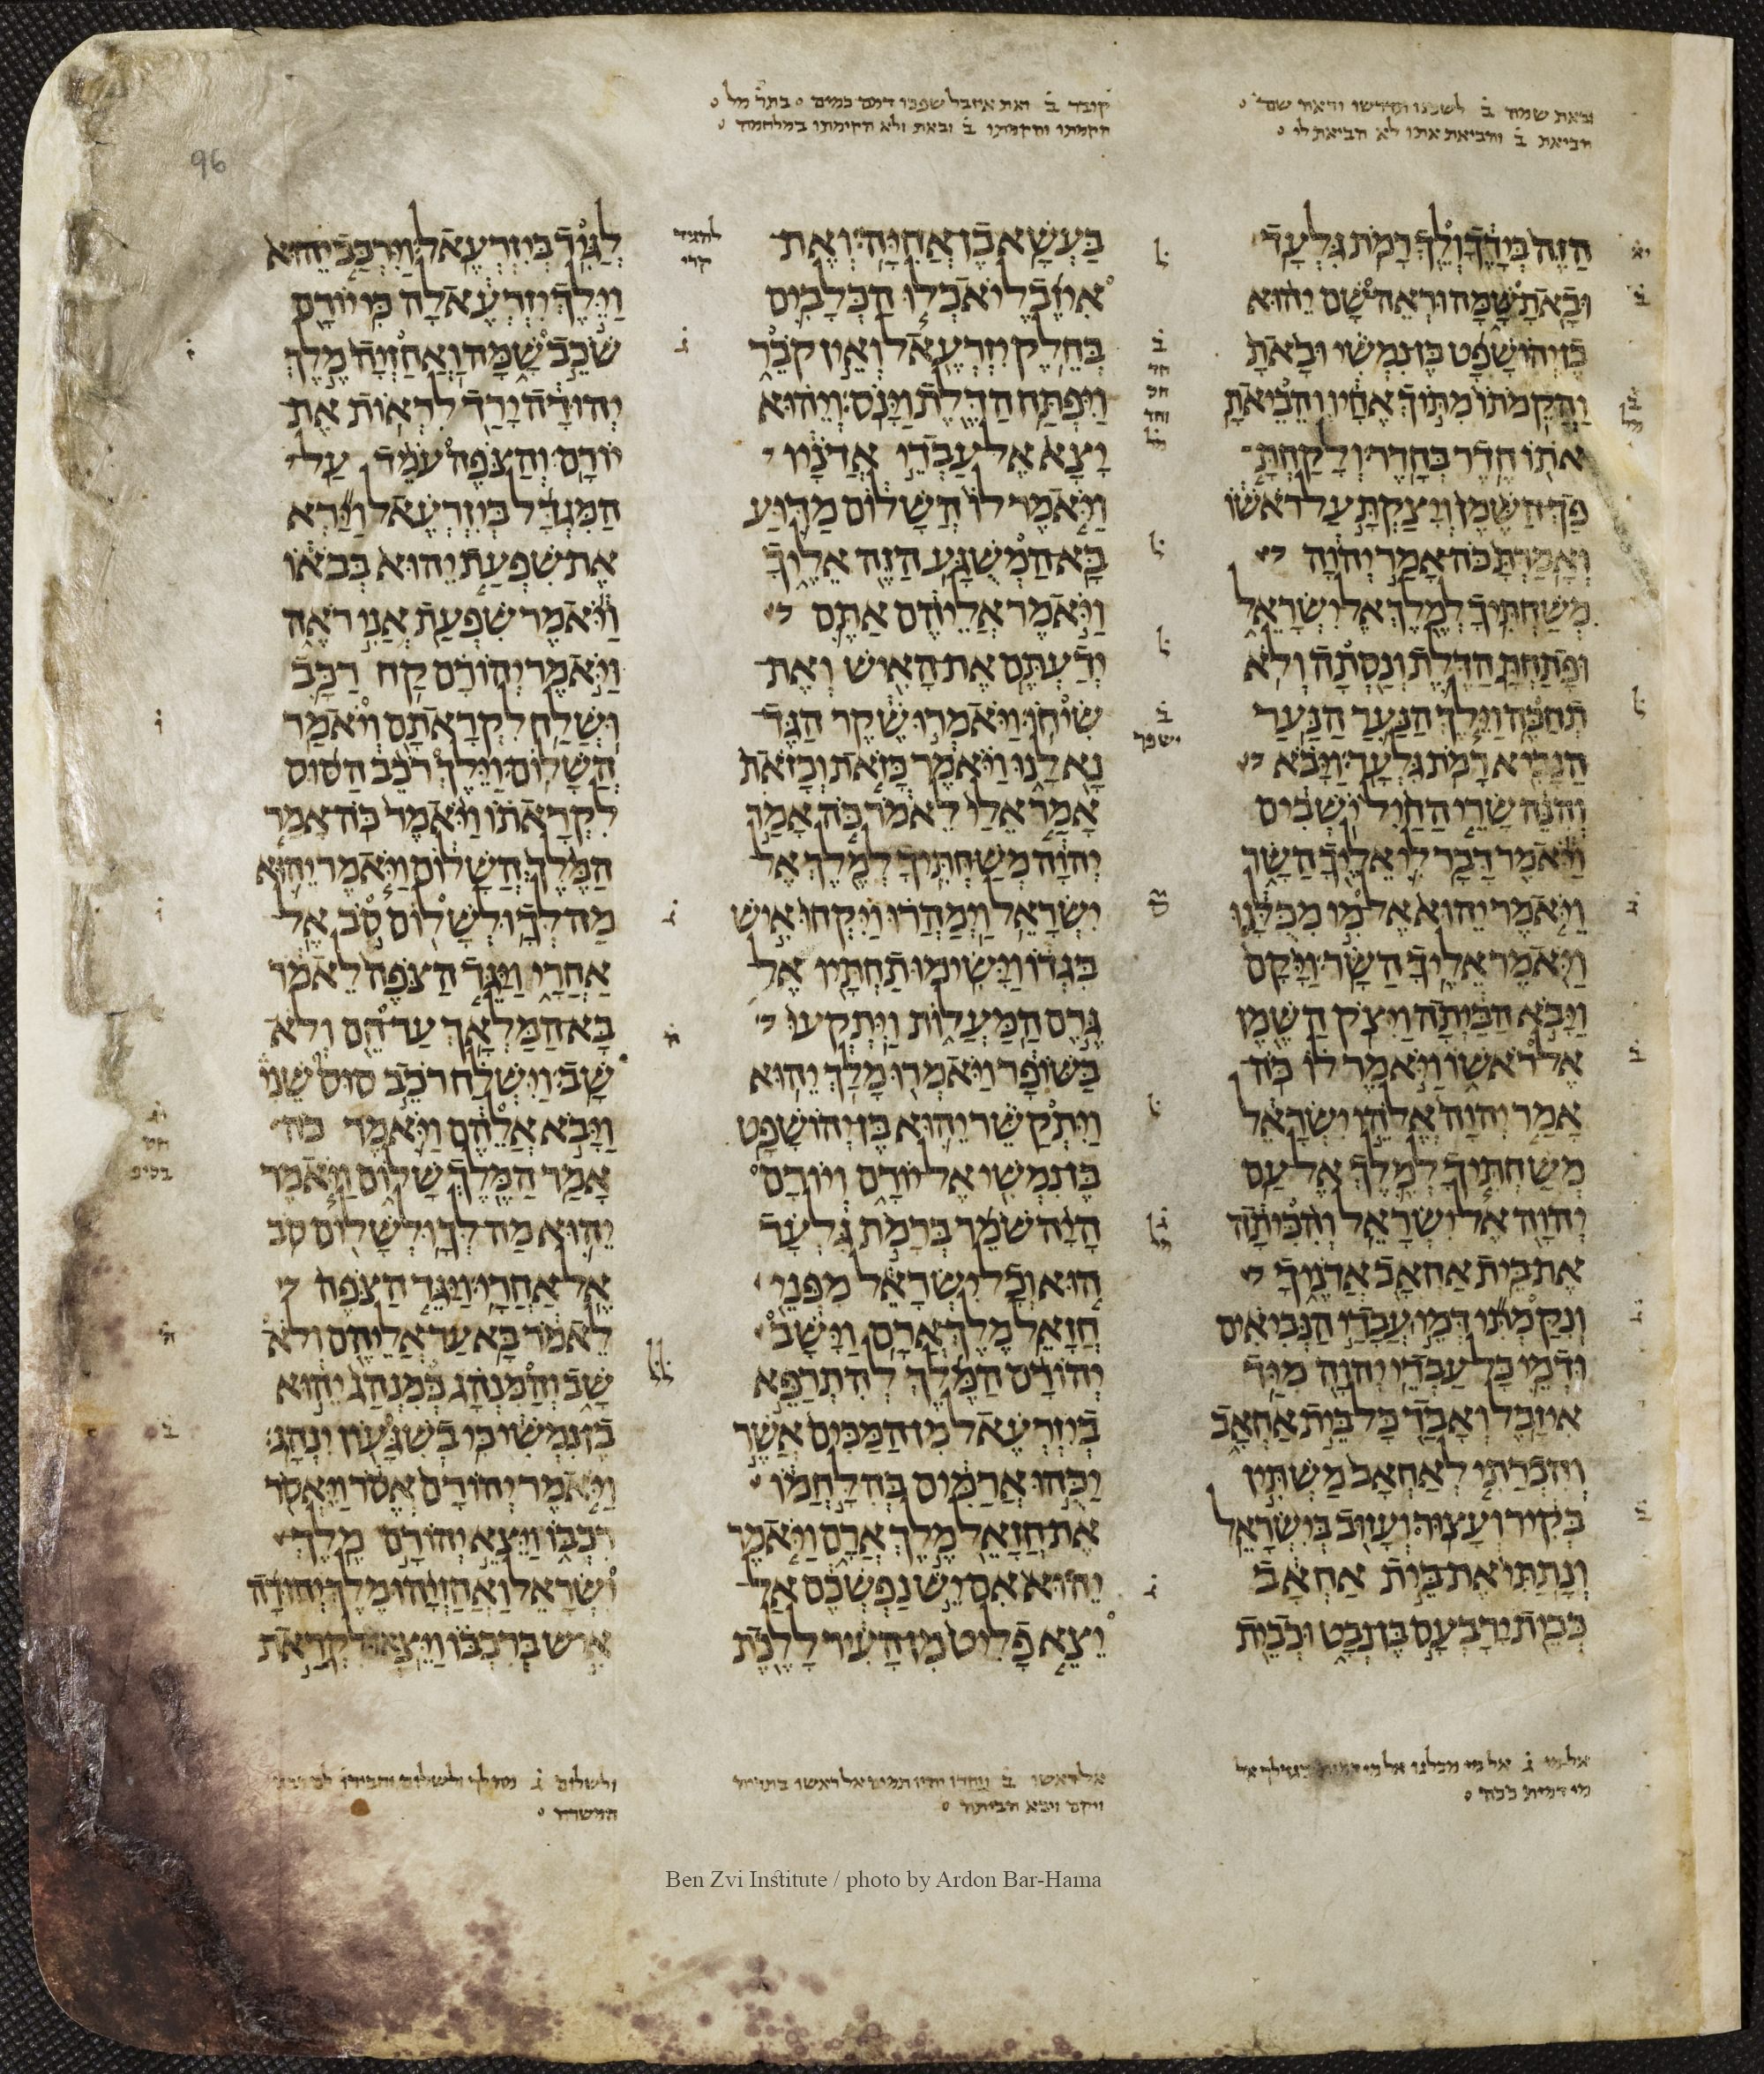 ובאת שמה ב̇ לשכנו תדרשו וראה שם
הביאת ב̇ והביאת אתו לא הביאת לי
קובר ב̇ ואת איזבל שפכו דמם כמים
הקמתו והקמתו ב̇ ובאת ולא הקימתו במלחמה
הזה בידך ולך רמת גלעד
ובאת שמה וראה שם יהוא
בן יהושפט בן נמשי ובאת
והקמתו מתוך אחיו והביאת
אתו חדר בחדר ולקחת
פך השמן ויצקת על ראשו
ואמרת כה אמר יהוה
משחתיך למלך אל ישראל
ופתחת הדלת ונסתה ולא
תחכה וילך הנער הנער
הנביא רמת גלעד ויבא
והנה שרי החיל ישבים
ויאמר דבר לי אליך השר
ויאמר יהוא אל מי מכלנו
ויאמר אליך השר ויקם
ויבא הביתה ויצק השמן
אל ראשו ויאמר לו כה
אמר יהוה אלהי ישראל
משחתיך למלך אל עם
יהוה אל ישראל והכיתה
את בית אחאב אדניך
ונקמתי דמי עבדי הנביאים
ודמי כל עבדי יהוה מיד
איזבל ואבד כל בית אחאב
והכרתי לאחאב משתין
בקיר ועצור ועזוב בישראל
ונתתי את בית אחאב
כבית ירבעם בן נבט וכבית
בעשא בן אחיה ואת
איזבל יאכלו הכלבים
בחלק יזרעאל ואין קבר
ויפתח הדלת וינס ויהוא
יצא אל עבדי אדניו
ויאמר לו השלום מדוע
בא המשגע הזה אליך
ויאמר אליהם אתם
ידעתם את האיש ואת
שיחו ויאמרו שקר הגד
נא לנו ויאמר כזאת וכזאת
אמר אלי לאמר כה אמר
יהוה משחתיך למלך אל
ישראל וימהרו ויקחו איש
בגדו וישימו תחתיו אל
גרם המעלות ויתקעו
בשופר ויאמרו מלך יהוא
ויתקשר יהוא בן יהושפט
בן נמשי אל יורם ויורם
היה שמר ברמת גלעד
הוא וכל ישראל מפני
חזאל מלך ארם וישב
יהורם המלך להתרפא
ביזרעאל מן המכים אשר
יכהו ארמים בהלחמו
את חזאל מלך ארם ויאמר
יהוא אם יש נפשכם אל
יצא פליט מן העיר ללכת
לגיד ביזרעאל וירכב יהוא
וילך יזרעאלה כי יורם
שכב שמה ואחזיה מלך
יהודה ירד לראות את
יורם והצפה עמד על
המגדל ביזרעאל וירא
את שפעת יהוא בבאו
ויאמר שפעת אני ראה
ויאמר יהורם קח רכב
ושלח לקראתם ויאמר
השלום וילך רכב הסוס
לקראתו ויאמר כה אמר
המלך השלום ויאמר יהוא
מה לך ולשלום סב אל
אחרי ויגד הצפה לאמר
בא המלאך עד הם ולא
שב וישלח רכב סוס שני
ויבא אלהם ויאמר כה
אמר המלך שלום ויאמר
יהוא מה לך ולשלום סב
אל אחרי ויגד הצפה
לאמר בא עד אליהם ולא
שב והמנהג כמנהג יהוא
בן נמשי כי בשגעון ינהג
ויאמר יהורם אסר ויאסר
רכבו ויצא יהורם מלך
ישראל ואחזיהו מלך יהודה
איש ברכבו ויצאו לקראת
להגיד
קרי
אל מי ג̇ אל מי מכלנו אל מי
מי דמית ככה
אל ראשו ב̇
ויקם ויבא הביתה
ולשלום ג̇
המשרה
96
Ben Zvi Institute / photo by Ardon Bar-Hama